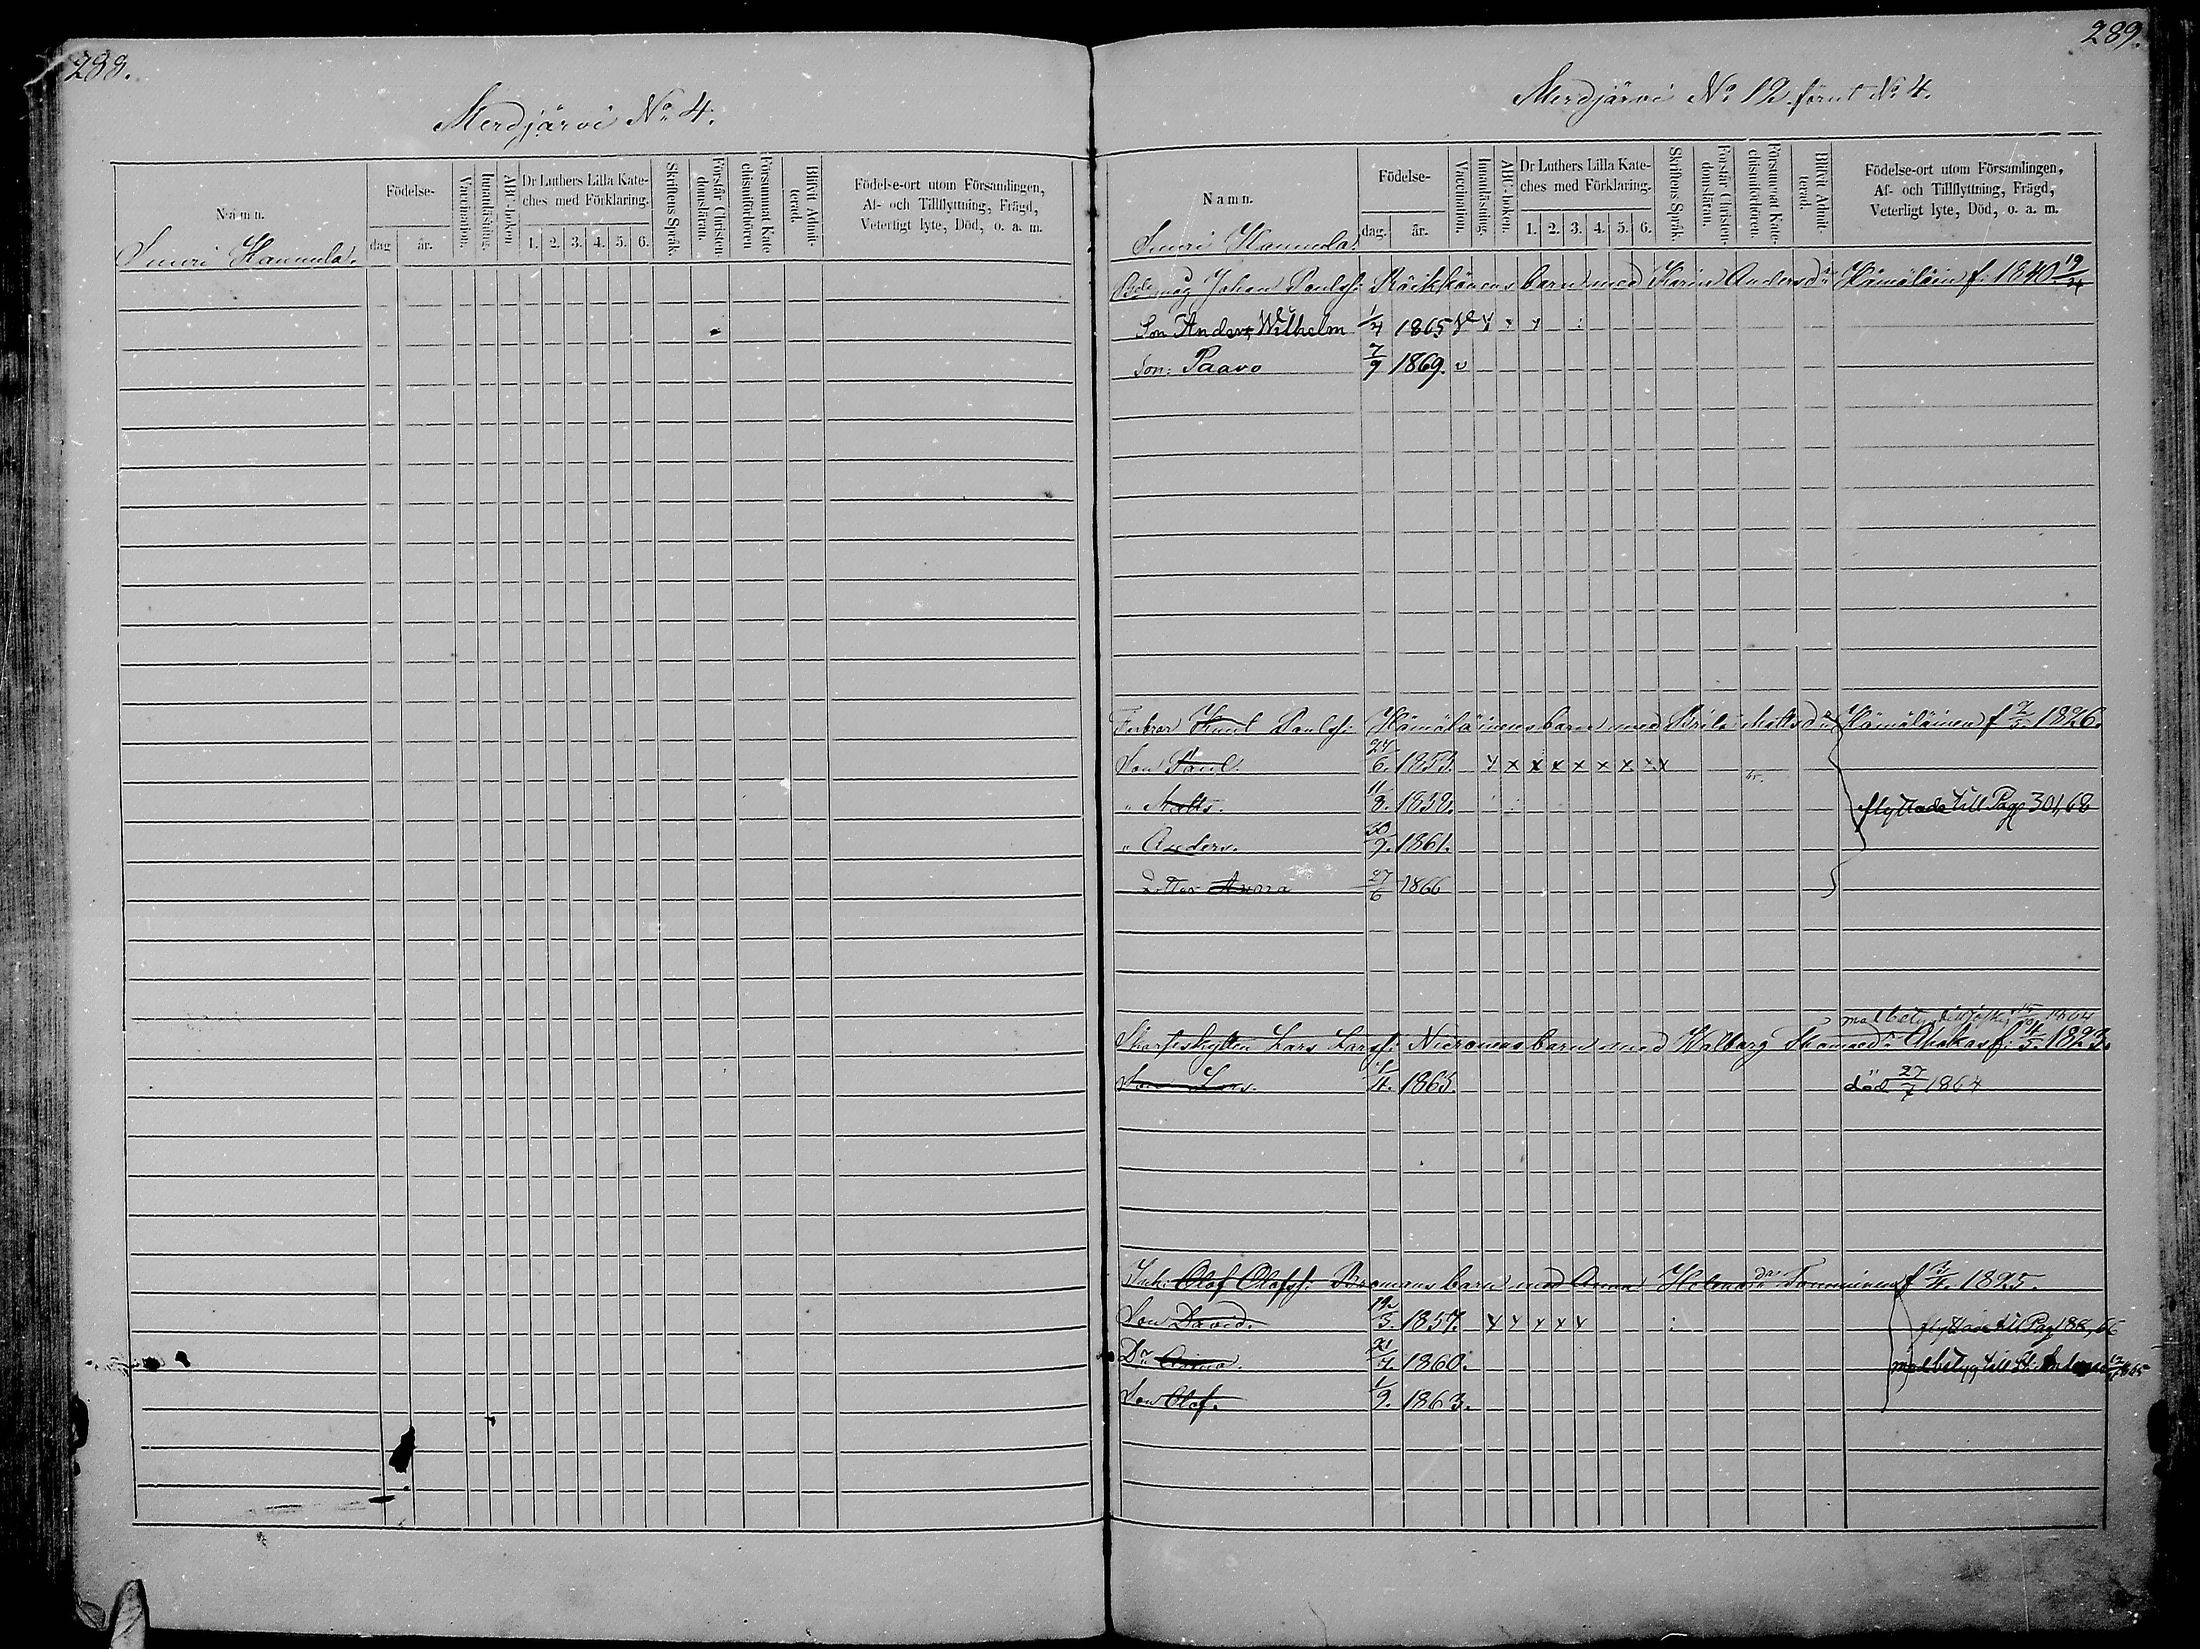 288.
Merdjärvi No 4.
Namn.
Födelse-
dag
år.
Vaccination.
Innanläsning.
ABC-boken
Dr Luthers Lilla Kate-
ches med Förklaring.
1. 2. 3. 4. 5. 6.
Skriftens Språk.
Förstår Christen-
domsläran.
Försummat Kate
chismiförhören
Blifvit Admit-
terad.
Födelse-ort utom Församlingen,
Af- och Tillflyttning, Frägd,
Veterligt lyte, Död, o. a. m.
Suuri Hannula.
289.
Merdjärvi No 12 förut No 4.
Namn.
Födelse-
dag.
år.
Vaccination.
Innanläsning.
ABC-boken.
Dr Luthers Lilla Kate-
ches med Förklaring.
1. 2. 3. 4. 5. 6.
Skriftens Språk.
Förstår Christen-
domsläran.
Försummat Kate-
chismiförhören.
Blifvit Admit-
terad.
Födelse-ort utom Församlingen,
Af- och Tillflyttning, Frägd,
Veterligt lyte, Död, o. a. m.
Suuri Hannula
måg Johan Paulss: Räikkönens barn med Karin Andersdr Hämäläin f. 1840 19/4
Son Anders Wilhelm 1/4 1865 v x x x
Son: Paavo 7/9 1869. v
Farbror Paulss: Hämäläinens barn med Brita Mattsdr Hämäläinen f 1826.
Son Paul. 24/6. 1853. x x x x x x x x x
" Matts. 11/8. 1858. flyttade till Pag 301, 68
" Anders. 30/9. 1861.
Dotter Anna 27/6 1866
1864
Skarpskytten Lars Larss: Nieronens barn med Walborg Thomasdr f. 1823.
Son Lars. 4. 1863. död 27/7 1864
Inh: Olof Olofss. Bromans barn med Anna Helena dr Tomminen f 3/4. 1825.
Son David. 12/3. 1857. x x x x x flyttade till Pag 188, 66
Dr Anna. 21/4 1860. med betyg till
Son Olof. 1/9. 1863.